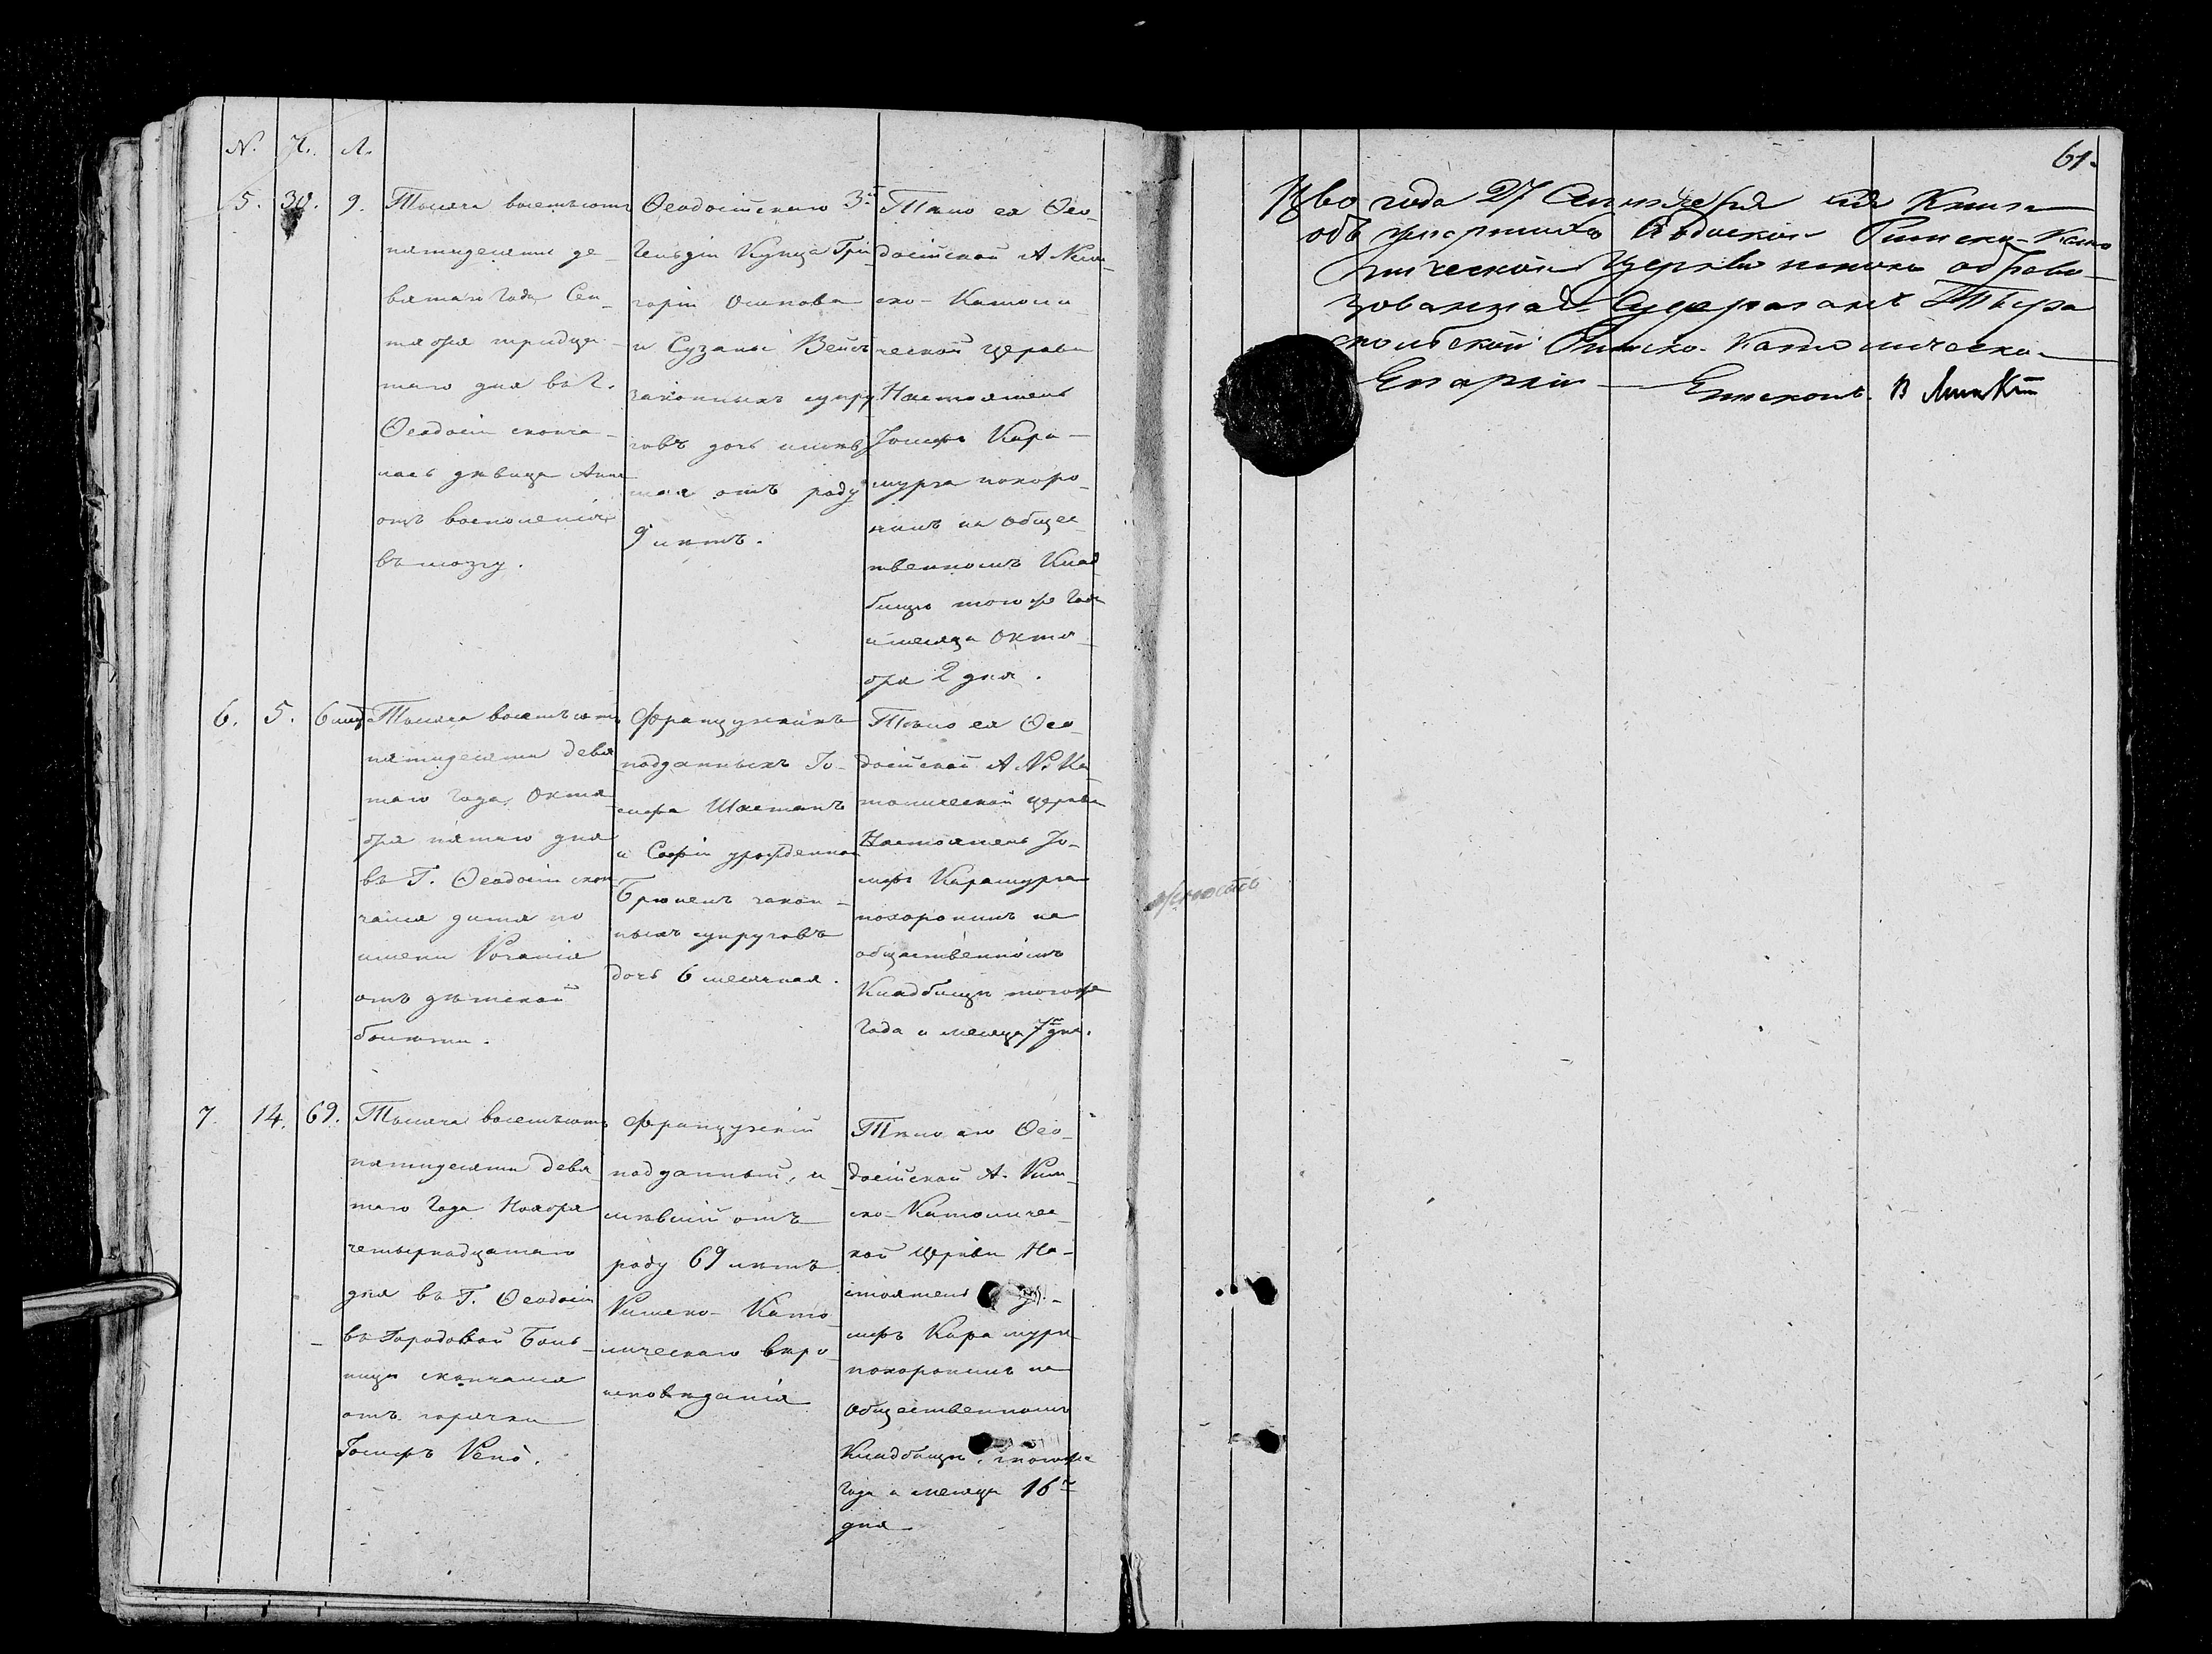 N. Ч. Л.
5. 30. 9.
Тысяча восемьсотъ
пятидесятъ де-
вятаго года Сен-
тября тридца-
таго дня въ Г.
Ѳеодосіи сконча-
лась дѣвица Анна
отъ восполенія
въ мозгу.
Ѳеодосійскаго 3й
Гильдіи Купца Гри-
горія Осипова
и Сузаны
законныхъ супру
говъ дочь имѣв
шая отъ роду
9 лѣтъ.
Тѣло ея Ѳео-
досійской А
ско-Католи
ческой церкви
Настоятель
Іосифъ Кара-
мурза похоро-
нилъ на общес-
твенномъ Клад
бищѣ того же Года
и месяца Октя-
бря 2 дня.
6. 5. 6 мц
Тысяча восемьсотъ
пятидесяти девя
таго года, Октя-
бря пятаго дня
въ Г. Ѳеодосіи скон
чался дитя по
имени
отъ дѣтской
болѣзти.
Французскихъ
подданныхъ Іо-
сифа
и Софіи урожденной
закон-
ныхъ супруговъ
дочь 6 месячная.
Тѣло ея Ѳео-
досійской А
толической церкви
Настоятель Іо-
сифъ Карамурза
похоронилъ на
общественномъ
Кладбищѣ тогоже
года и месяца 7го дня.
7. 14. 69.
Тысяча восемьсотъ
пятидесяти девя
таго Года Ноября
четырнадцатаго
дня въ Г. Ѳеодосіи
въ Городовой Боль-
ницѣ скончался
отъ горячки
Іосифъ Рено.
Французскій
подданный, и-
мѣвшій отъ
роду 69 лѣтъ
Римско-Като-
лическаго вѣро-
исповѣданія
Тѣло его Ѳео-
досійской А. Рим-
ско-Католичес-
кой Церкви На-
стоятель
сифъ Карамурза
похоронилъ на
Общественномъ
Кладбищѣ, тогоже
года и месяца 16го
дня
61.
года 27 Сентября сія Книга
объ умершихъ Римско-Като
лической Церкви
Суфраганъ Тира
спольской Римско-Католическо-
Епархіи Епископъ. В Липскій